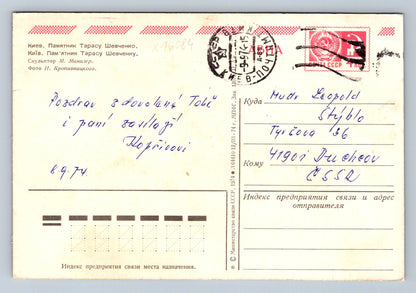 Киев. Памятник Тарасу Шевченко.
Київ. Пам'ятник Тарасу Шевченку.
Скульптор М. Манизер.
Фото Н. Кропивницкого.
АВИА
СССР
Pozdrav z dovolené Tobě
i paní zasílají
Kopřivovi
8.9.74.
Куда
Mudr Leopold
Stýblo
Tyršova 36
Кому
41901 Duchcov
ČSSR
Индекс предприятия связи и адрес
отправителя
Индекс предприятия связи места назначения.
© Министерство связи СССР, 1974